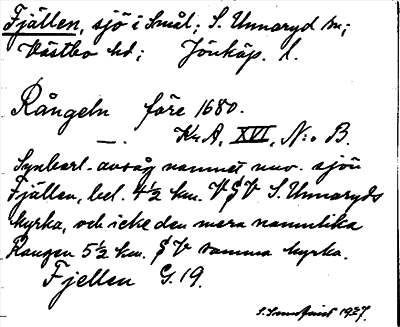 Fjällen, sjö i Smål; S. Unnaryd sn;
Västbo hd; Jönköp. l.
Rångeln före 1680.
—. Kr A, XVI, N:o B.
Synbarl. avsåg namnet nuv. sjön
Fjällen, bel. 4½ km. V S V S. Unnaryds
kyrka, och icke den mera namnlika
Rangen 5½ km. S V samma kyrka.
Fjellen G. 19.
1927.